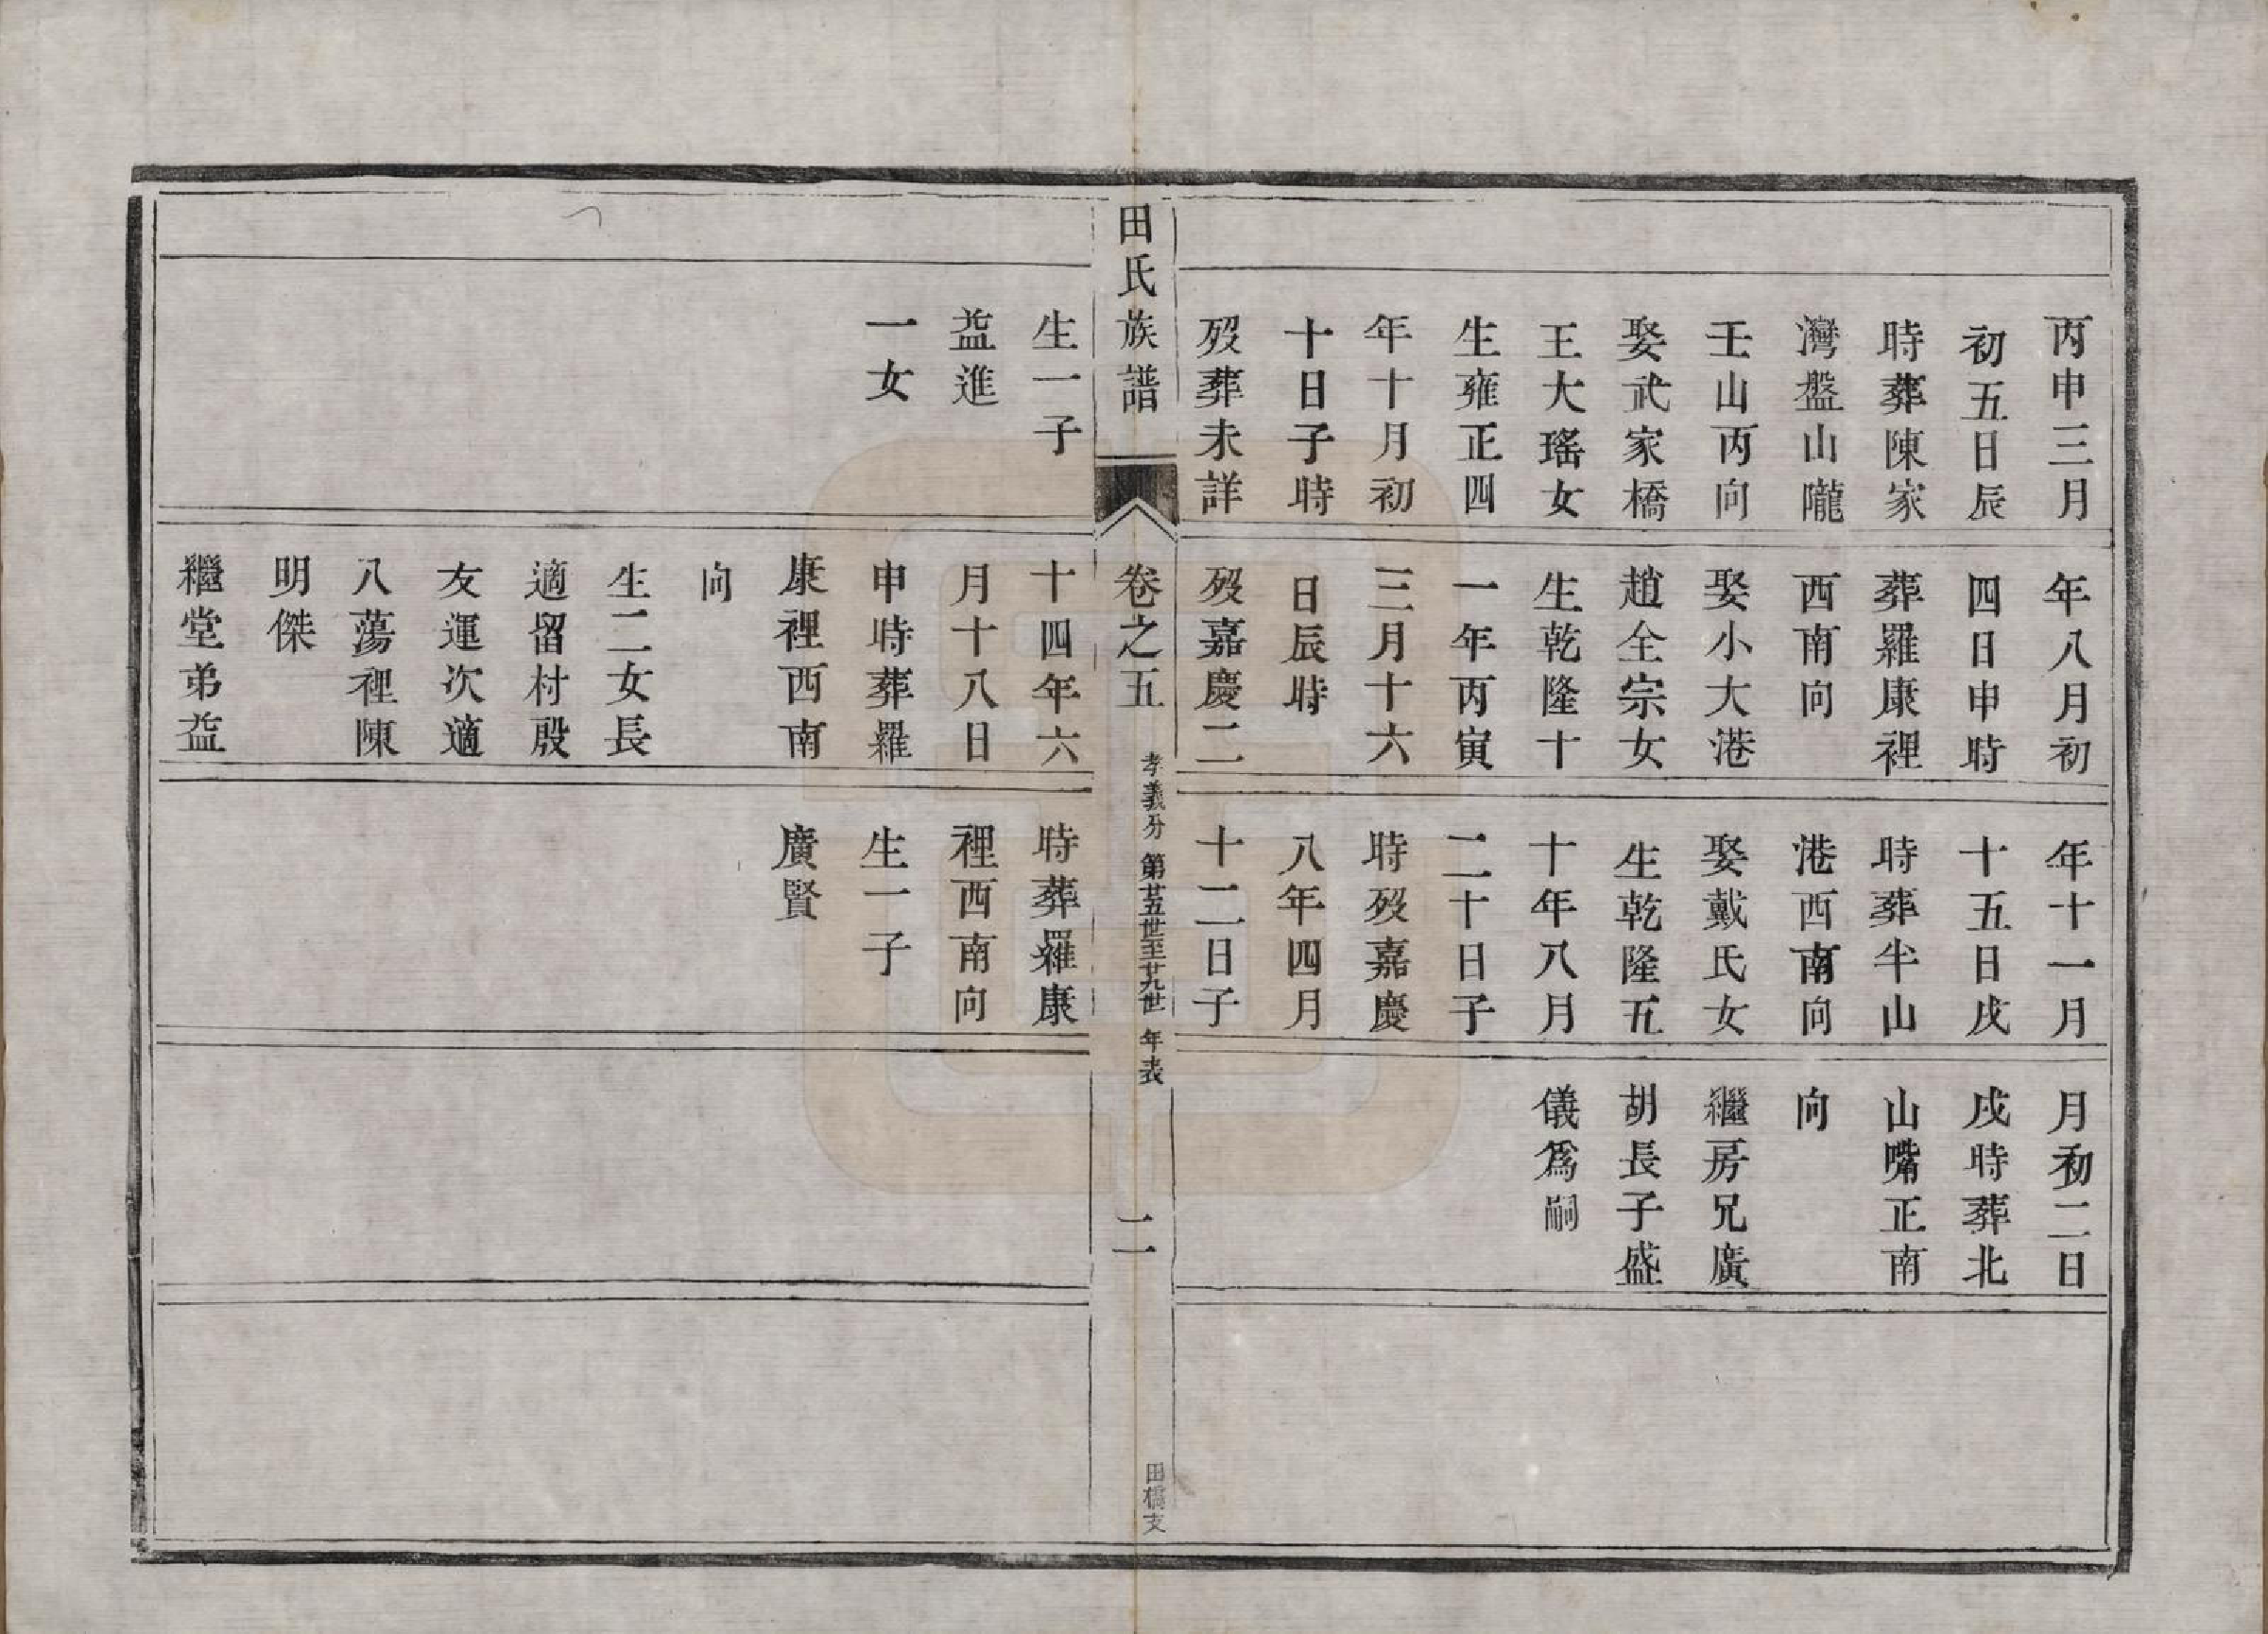 丙申三月
初五日辰
時葬陳家
灣盤山隴
壬山丙向
娶武家橋
王大瑤女
生雍正四
年十月初
十日子時
歿葬未詳
年八月初
四日申時
葬羅康裡
西南向
娶小大港
趙全宗女
生乾隆十
一年丙寅
三月十六
日辰時
歿嘉慶二
年十一月
十五日戌
時葬半山
港西南向
娶戴氏女
生乾隆五
十年八月
二十日子
時歿嘉慶
八年四月
十二日子
月初二日
戌時葬北
山嘴正南
向
繼房兄廣
胡長子盛
儀為嗣
田氏族譜
卷之五
孝義分 第廿五世至廿九世 年表
二
田橋支
生一子
益進
一女
十四年六
月十八日
申時葬羅
康裡西南
向
生二女長
適留村殷
友運次適
八蕩裡陳
明傑
繼堂弟益
時葬羅康
裡西南向
生一子
廣賢